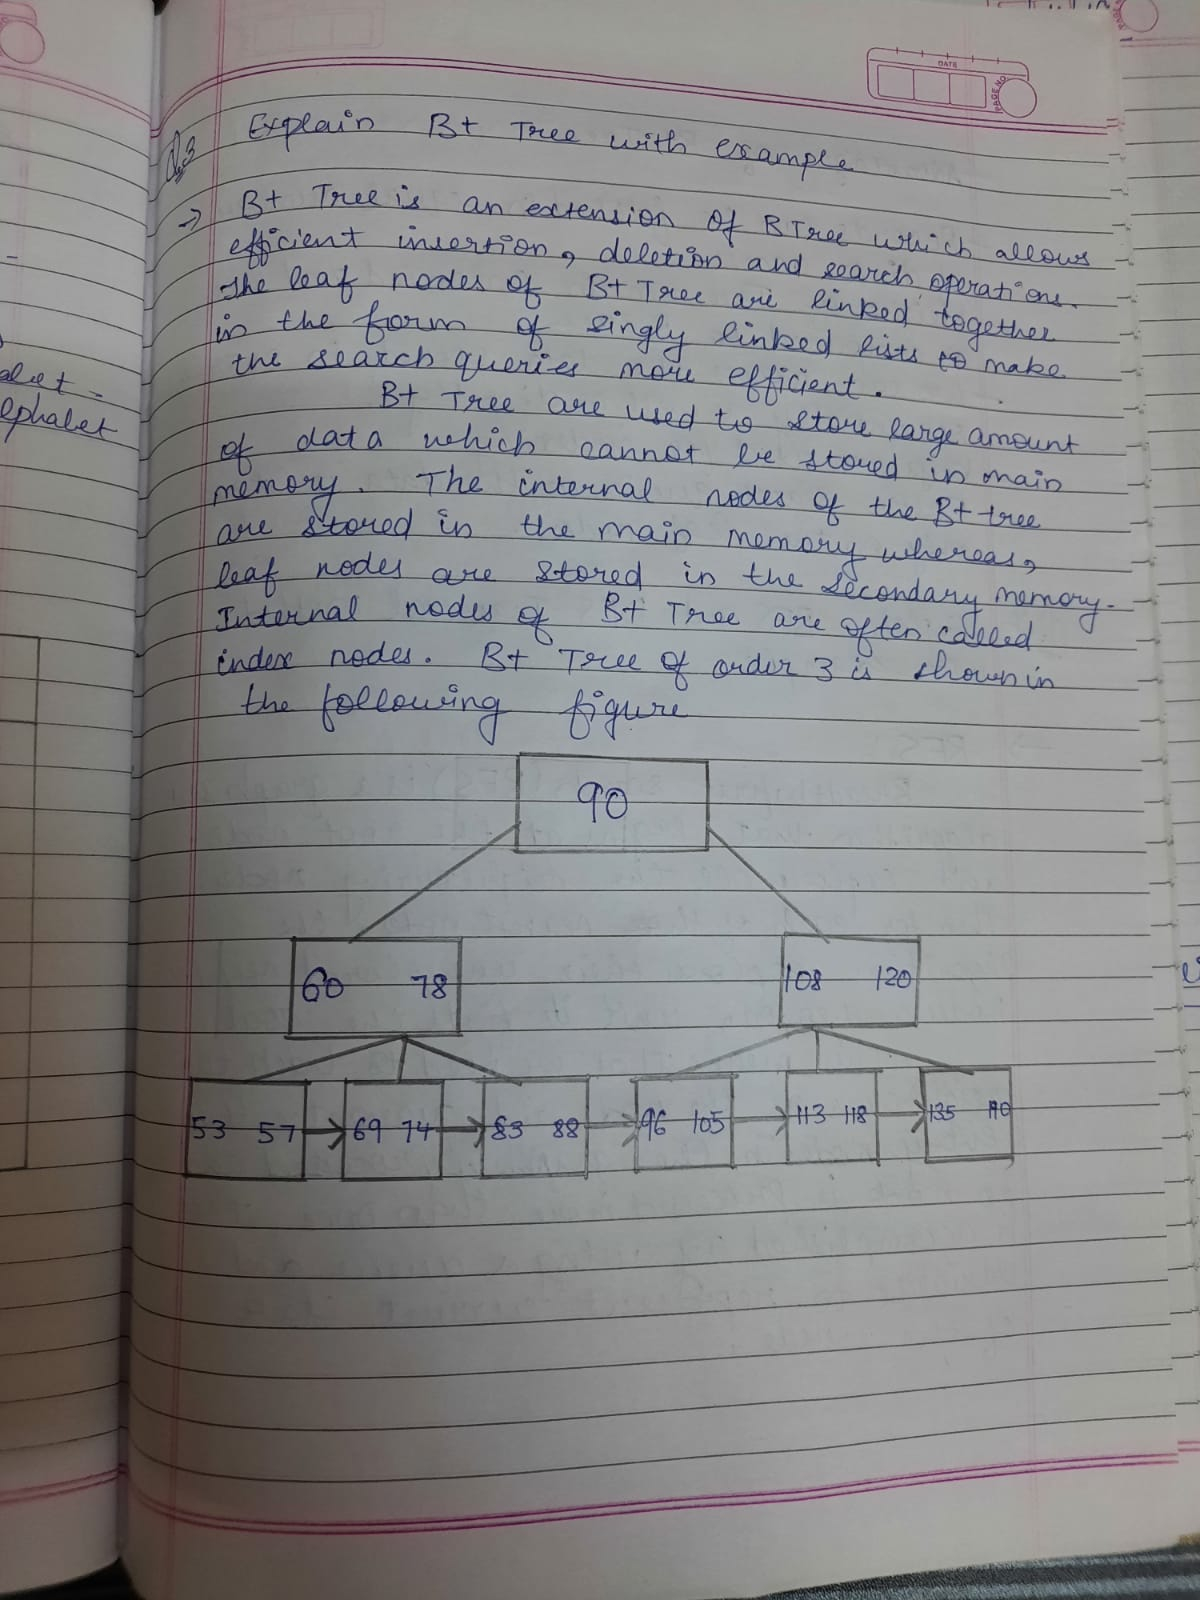 DATE
PAGE NO.
Q.3 Explain B+ Tree with example
→ B+ Tree is an extension of B Tree which allows
efficient insertion, deletion and search operations.
The leaf nodes of B+ Tree are linked together
in the form of singly linked lists to make
the search queries more efficient.
B+ Tree are used to store large amount
of data which cannot be stored in main
memory. The internal nodes of the B+ tree
are stored in the main memory whereas,
leaf nodes are stored in the secondary memory.
Internal nodes of B+ Tree are often called
index nodes. B+ Tree of order 3 is shown in
the following figure
90
60 78 108 120
53 57 69 74 83 88 96 105 113 118 135
ephabet